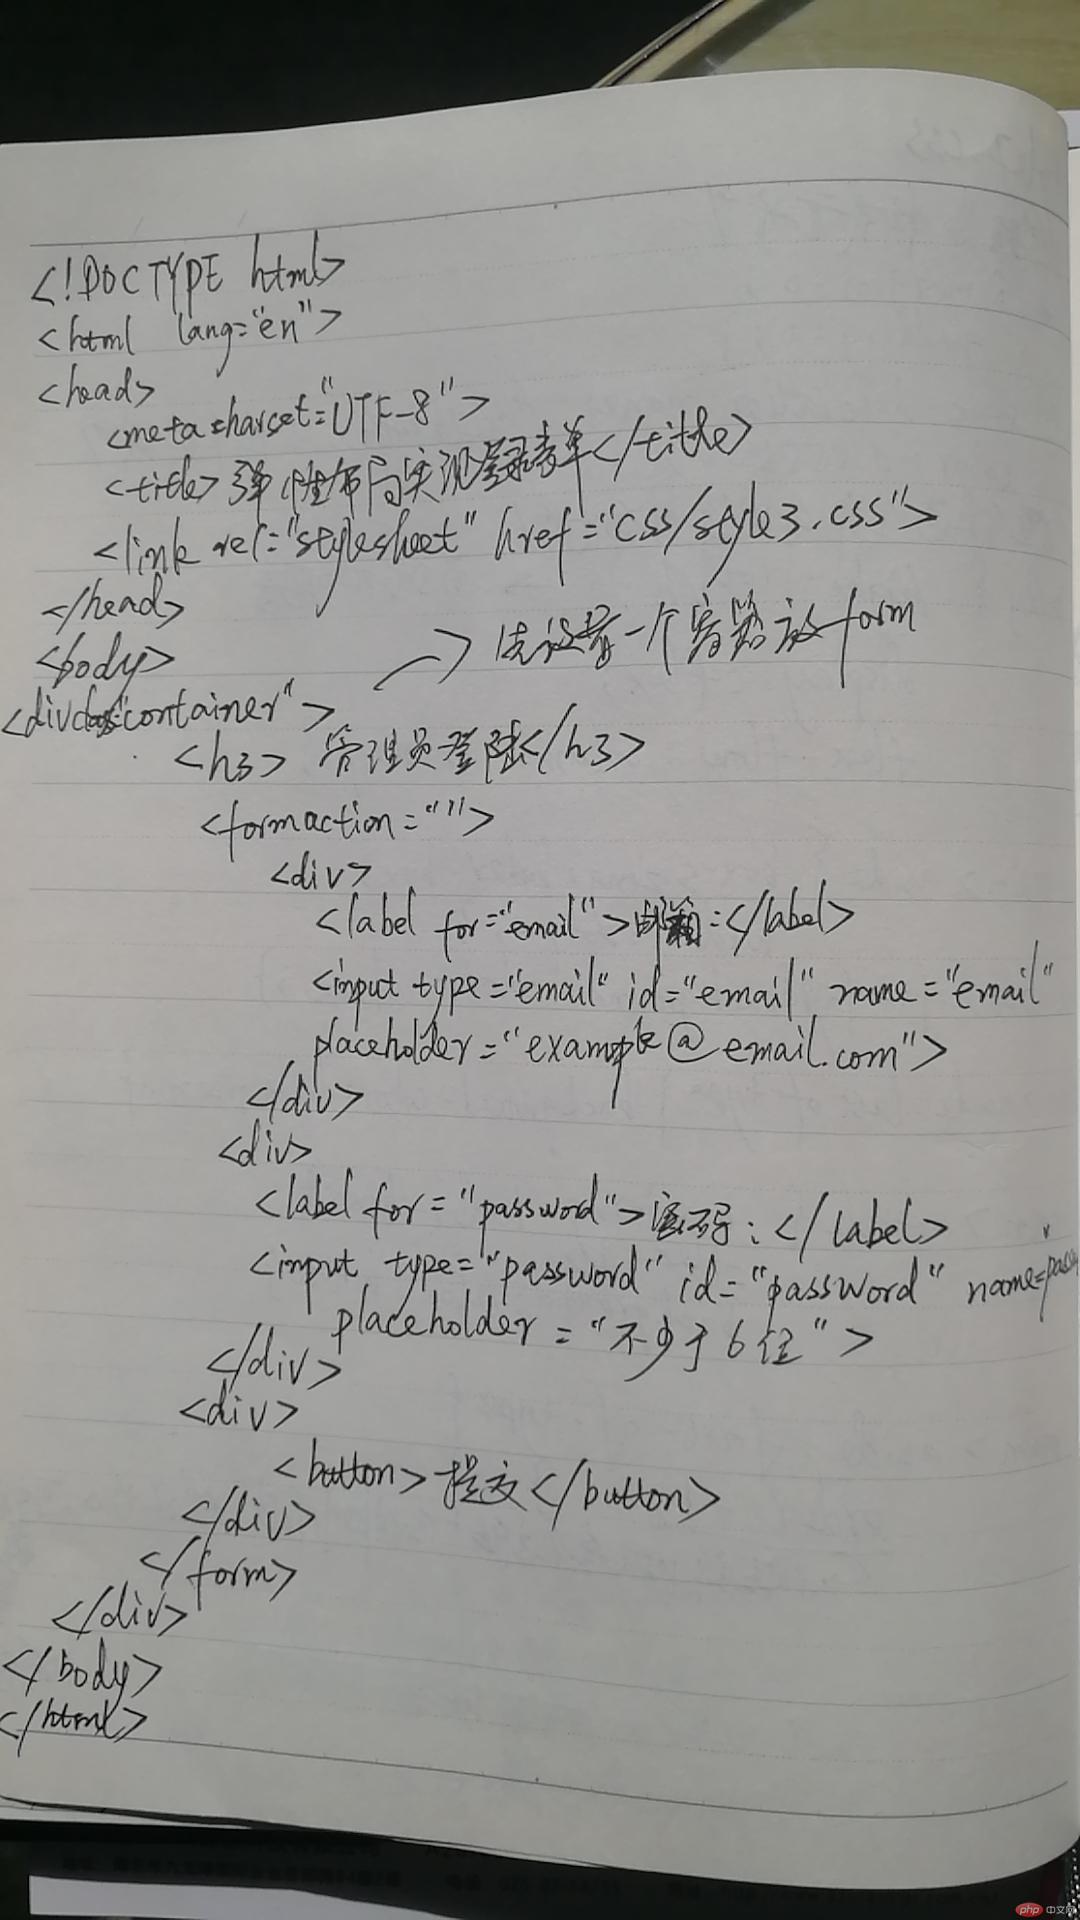 <!DOCTYPE html>
<html lang="en">
<head>
<meta charset="UTF-8">
<title>弹性布局实现登录表单</title>
<link rel="stylesheet" href="css/style3.css">
</head>
<body>
→ 先设置一个容器放form
<div class="container">
<h3>管理员登陆</h3>
<form action="">
<div>
<label for="email">邮箱:</label>
<input type="email" id="email" name="email"
placeholder="example@email.com">
</div>
<div>
<label for="password">密码:</label>
<input type="password" id="password" name="pass
placeholder="不少于6位">
</div>
<div>
<button>提交</button>
</div>
</form>
</div>
</body>
</html>
php 中文网